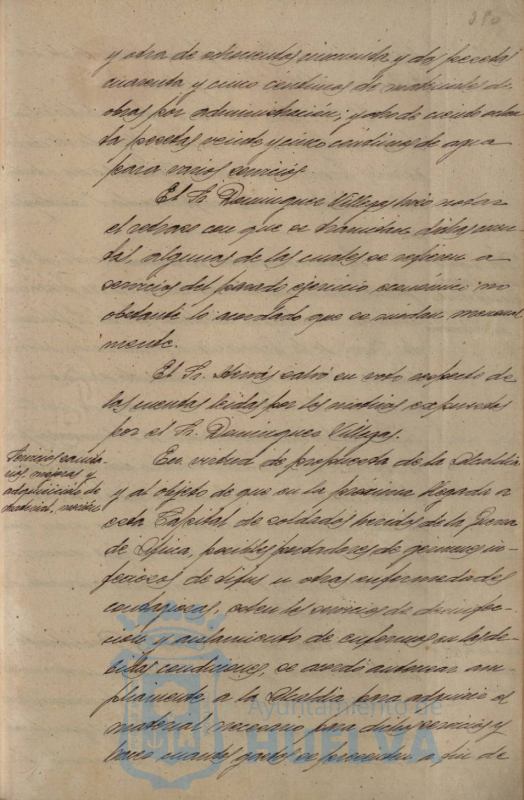 y otra de ochocientas cincuenta y dos pesetas
cuarenta y cinco céntimos de materiales de
obras por administración; y otra de ciento
ta pesetas veinte y cinco céntimos de agua
para varios servicios.
El Sr. Dominguez Villegas hizo notar
el retraso con que se tramitan dichas cuen-
tas, algunas de las cuales se refieren a
servicios del pasado ejercicio económico no
obstante lo acordado que se rindan mensual-
mente.
El Sr. salvó su voto respecto de
las cuentas leidas por los motivos expuestos
por el Sr. Dominguez Villegas.
Servicios sanita-
rios, mejoras y
adquisición de
material,
En virtud de propuesta de la Alcaldía
y al objeto de que en la próxima llegada a
esta Capital de soldados heridos de la Guerra
de Africa, posibles portadores de germenes in-
fecciosos de tifus u otras enfermedades
contagiosas, esten los servicios de desinfec-
ción y aislamiento de enfermos en las de-
bidas condiciones, se acordó autorizar am-
pliamente a la Alcaldía para adquirir el
material necesario para dichos servicios y
hacer cuantos gastos se presenten a fin de
Ayuntamiento de
HUELVA